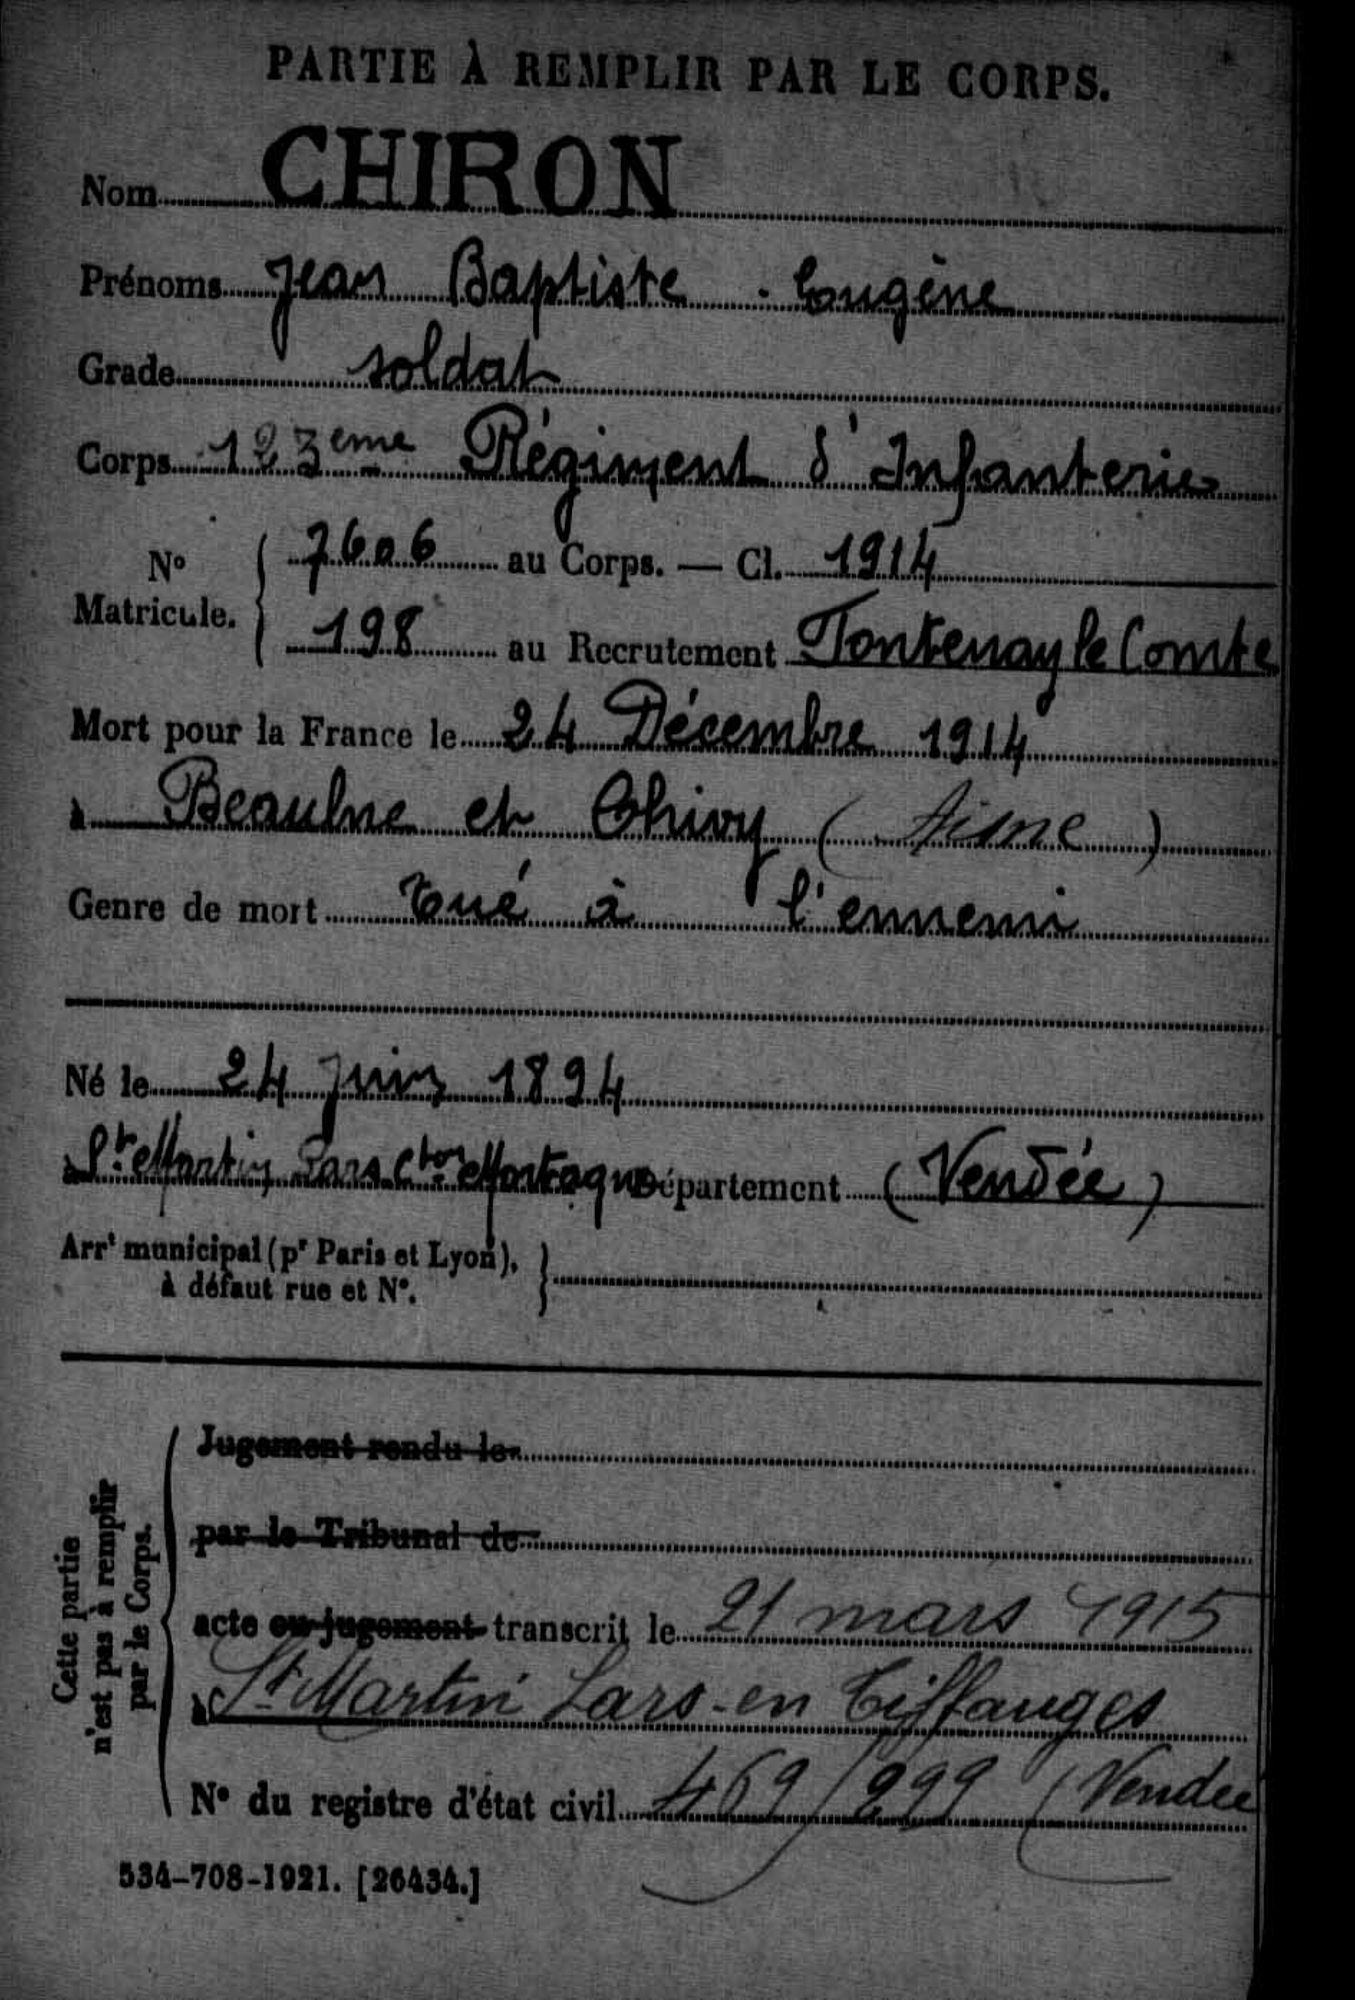 PARTIE À REMPLIR PAR LE CORPS.
Nom CHIRON
Prénoms Jean Baptiste Eugène
Grade soldat
Corps 123eme Régiment d'Infanterie
N° Matricule. 7606 au Corps. — Cl. 1914
198 au Recrutement Fontenay le Comte
Mort pour la France le 24 Décembre 1914
à Beaulne et Chivy (Aisne)
Genre de mort Tué à l'ennemi
Né le 24 Juin 1894
à St Martin Lars Cton Mortagne Département (Vendée)
Arrt municipal (pr Paris et Lyon),
à défaut rue et N°.
Cette partie
n'est pas à remplir
par le Corps.
Jugement rendu le
par le Tribunal de
acte ou jugement transcrit le 21 mars 1915
à St Martin Lars-en Tiffauges
N° du registre d'état civil 469/299 (Vendée
534-708-1921. [26434.]